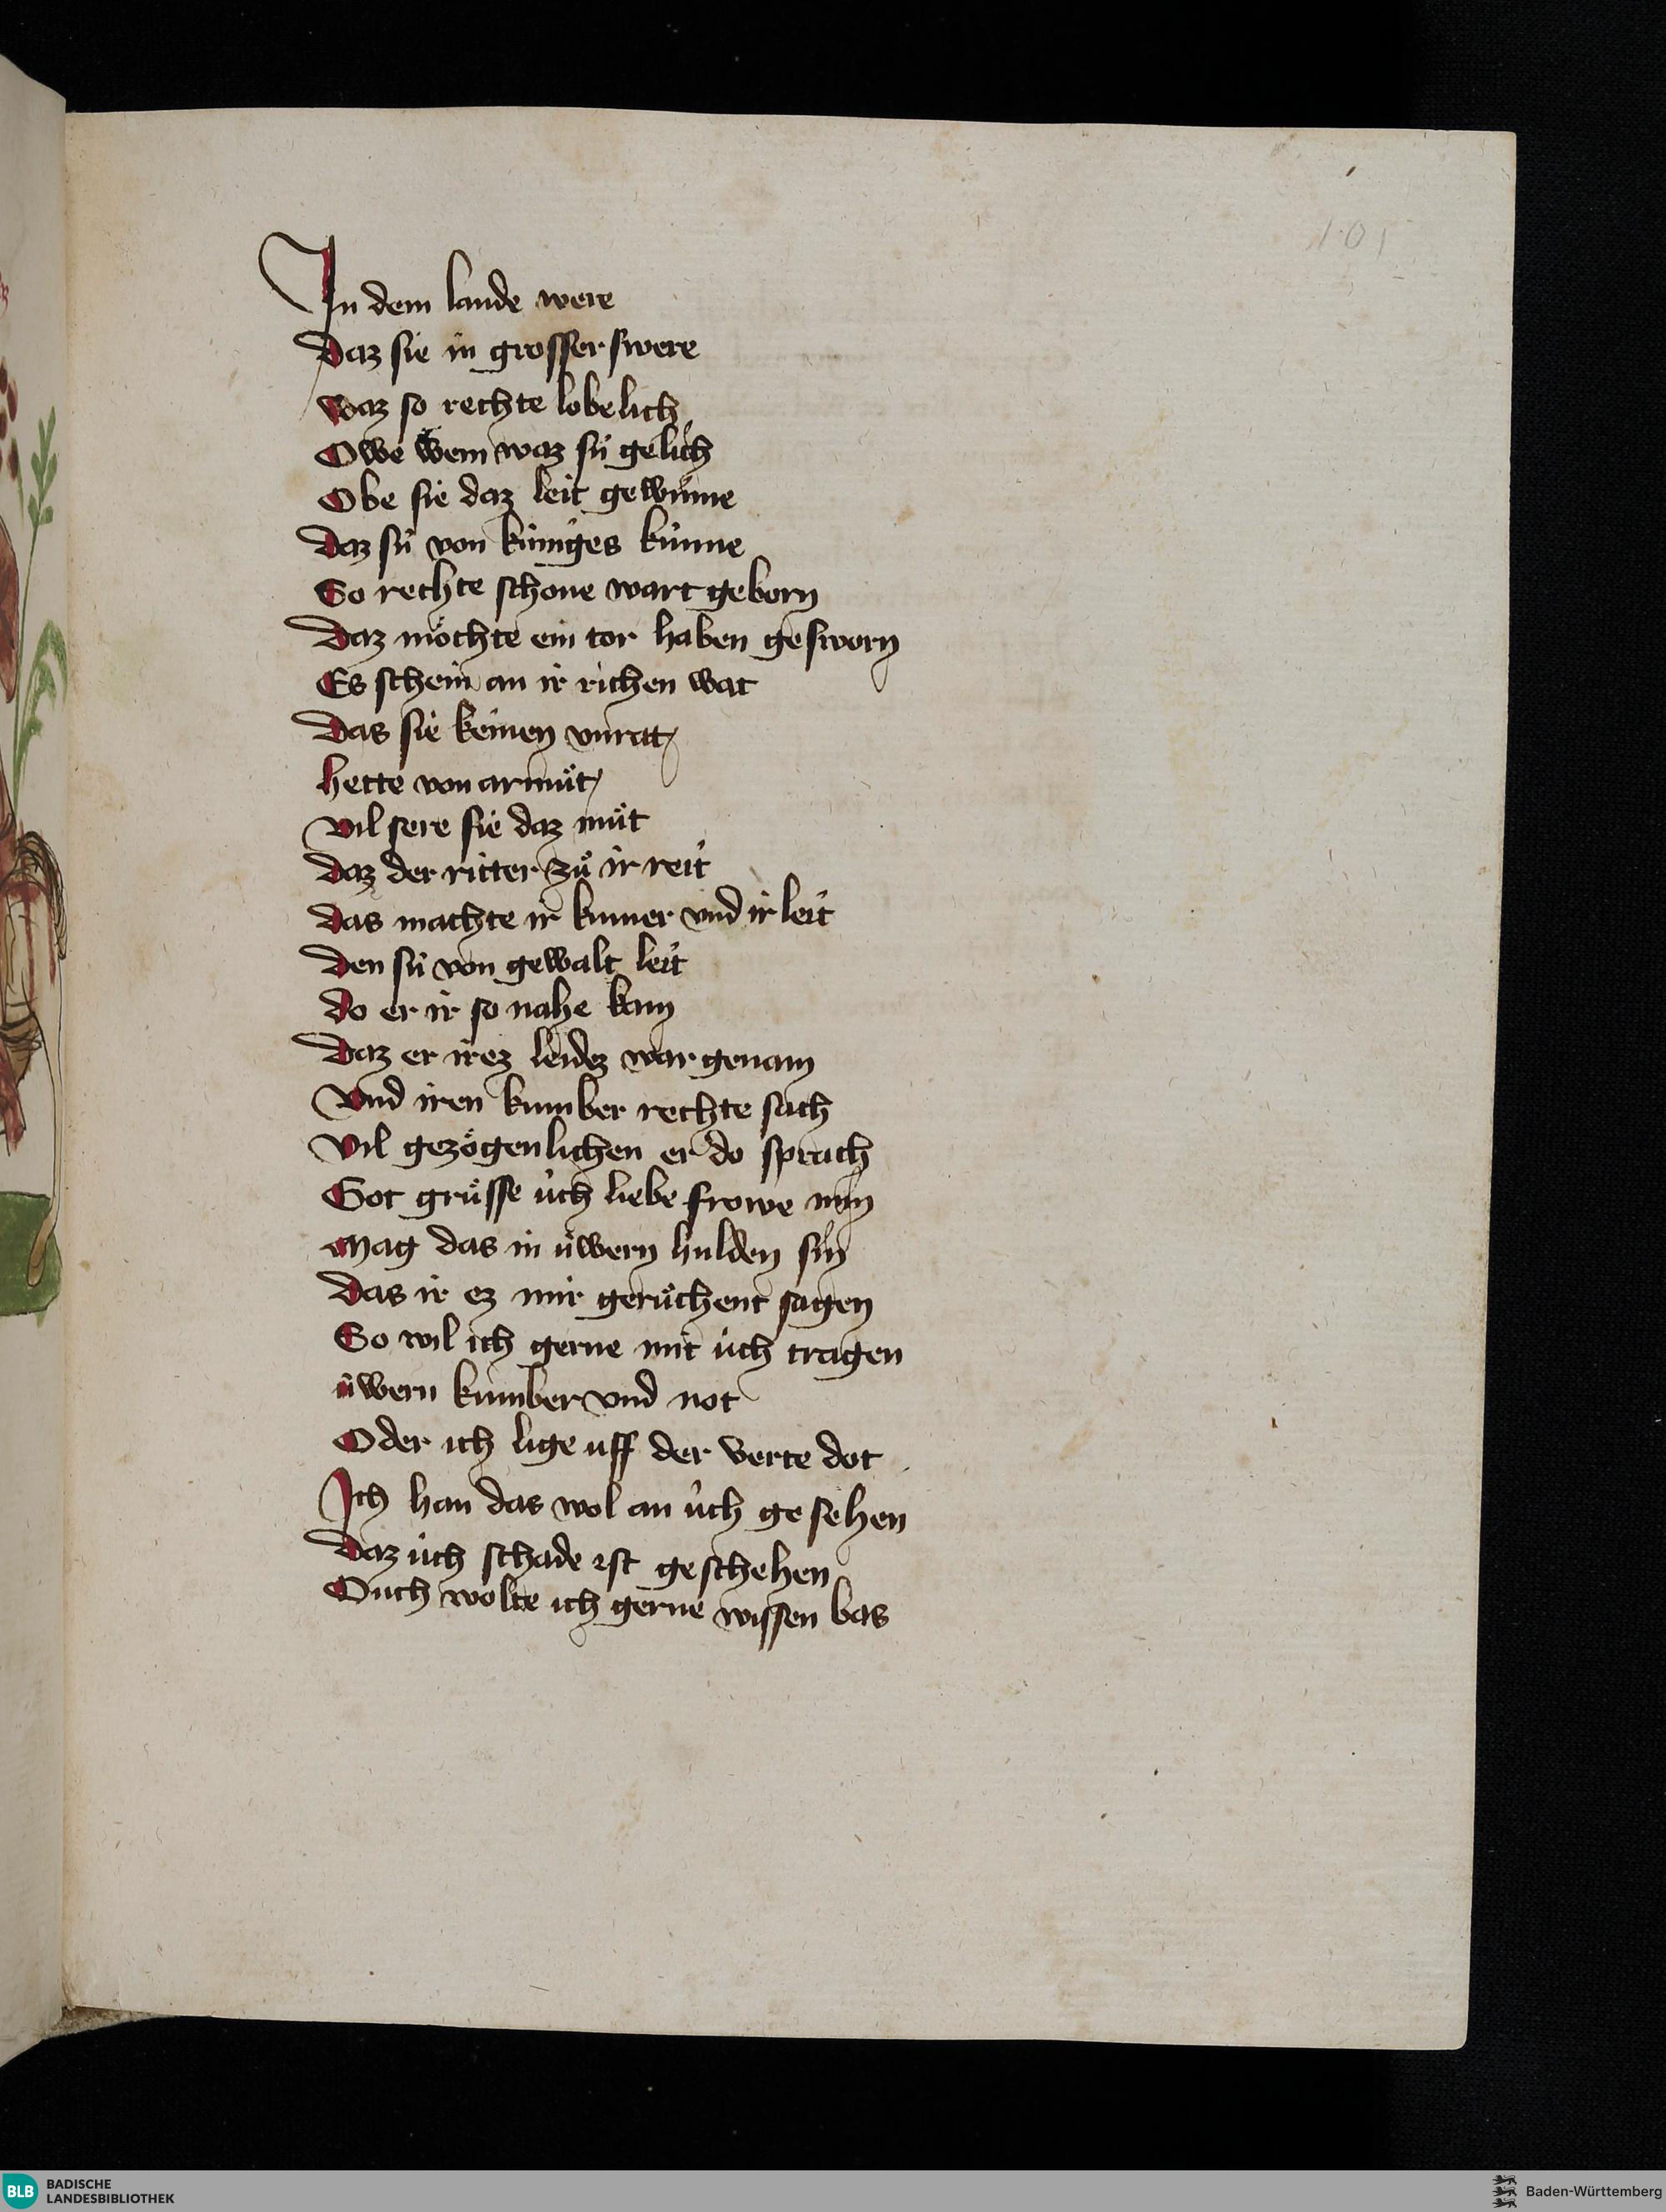 101
In dem lande were
Daz sie in grosser swere
Waz so rechte lobelich
Owe wem waz sú gelich
Obe sie daz leit gewúnne
Daz sú von kúniges kúnne
So rechte schone wart geborn
Daz möchte ein tor haben gesworn
Es schein an ir richen wat
Das sie keinen vnratt
hette von armuͦt
Vil sere sie daz muͦt
Daz der ritter zuͦ ir reit
Das machte ir kumer vnd ir leit
Den sú von gewalt leit
Do er ir so nahe kam
Daz er irez leidez war genam
Vnd iren kumber rechte sach
Vil gezögenlichen er do sprach
Got gruͤsse úch liebe frowe min
Mag das in úwern hulden sin
Das ir ez mir geruͦchent sagen
So wil ich gerne mit úch tragen
úwern kumber vnd not
Oder ich lige uff der verte dot
Ich han das wol an úch ge sehen
Daz úch schade ist geschehen
Ouch wolte ich gerne wissen bas
BLB BADISCHE
LANDESBIBLIOTHEK
Baden-Württemberg